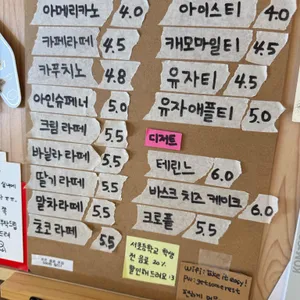 아메리카노 4.0
카페라떼 4.5
카푸치노 4.8
아인슈페너 5.0
크림 라떼 5.5
바닐라 라떼 5.5
딸기 라떼 5.5
말차 라떼 5.5
초코 라떼 5.5
아이스티 4.0
캐모마일티 4.5
유자티 4.5
유자애플티 5.0
디저트
테린느 6.0
바스크 치즈 케이크 6.0
크로플 5.5
서초등학교 학생
전 음료 20%
할인해드려요 :)
wifi: like it easy!